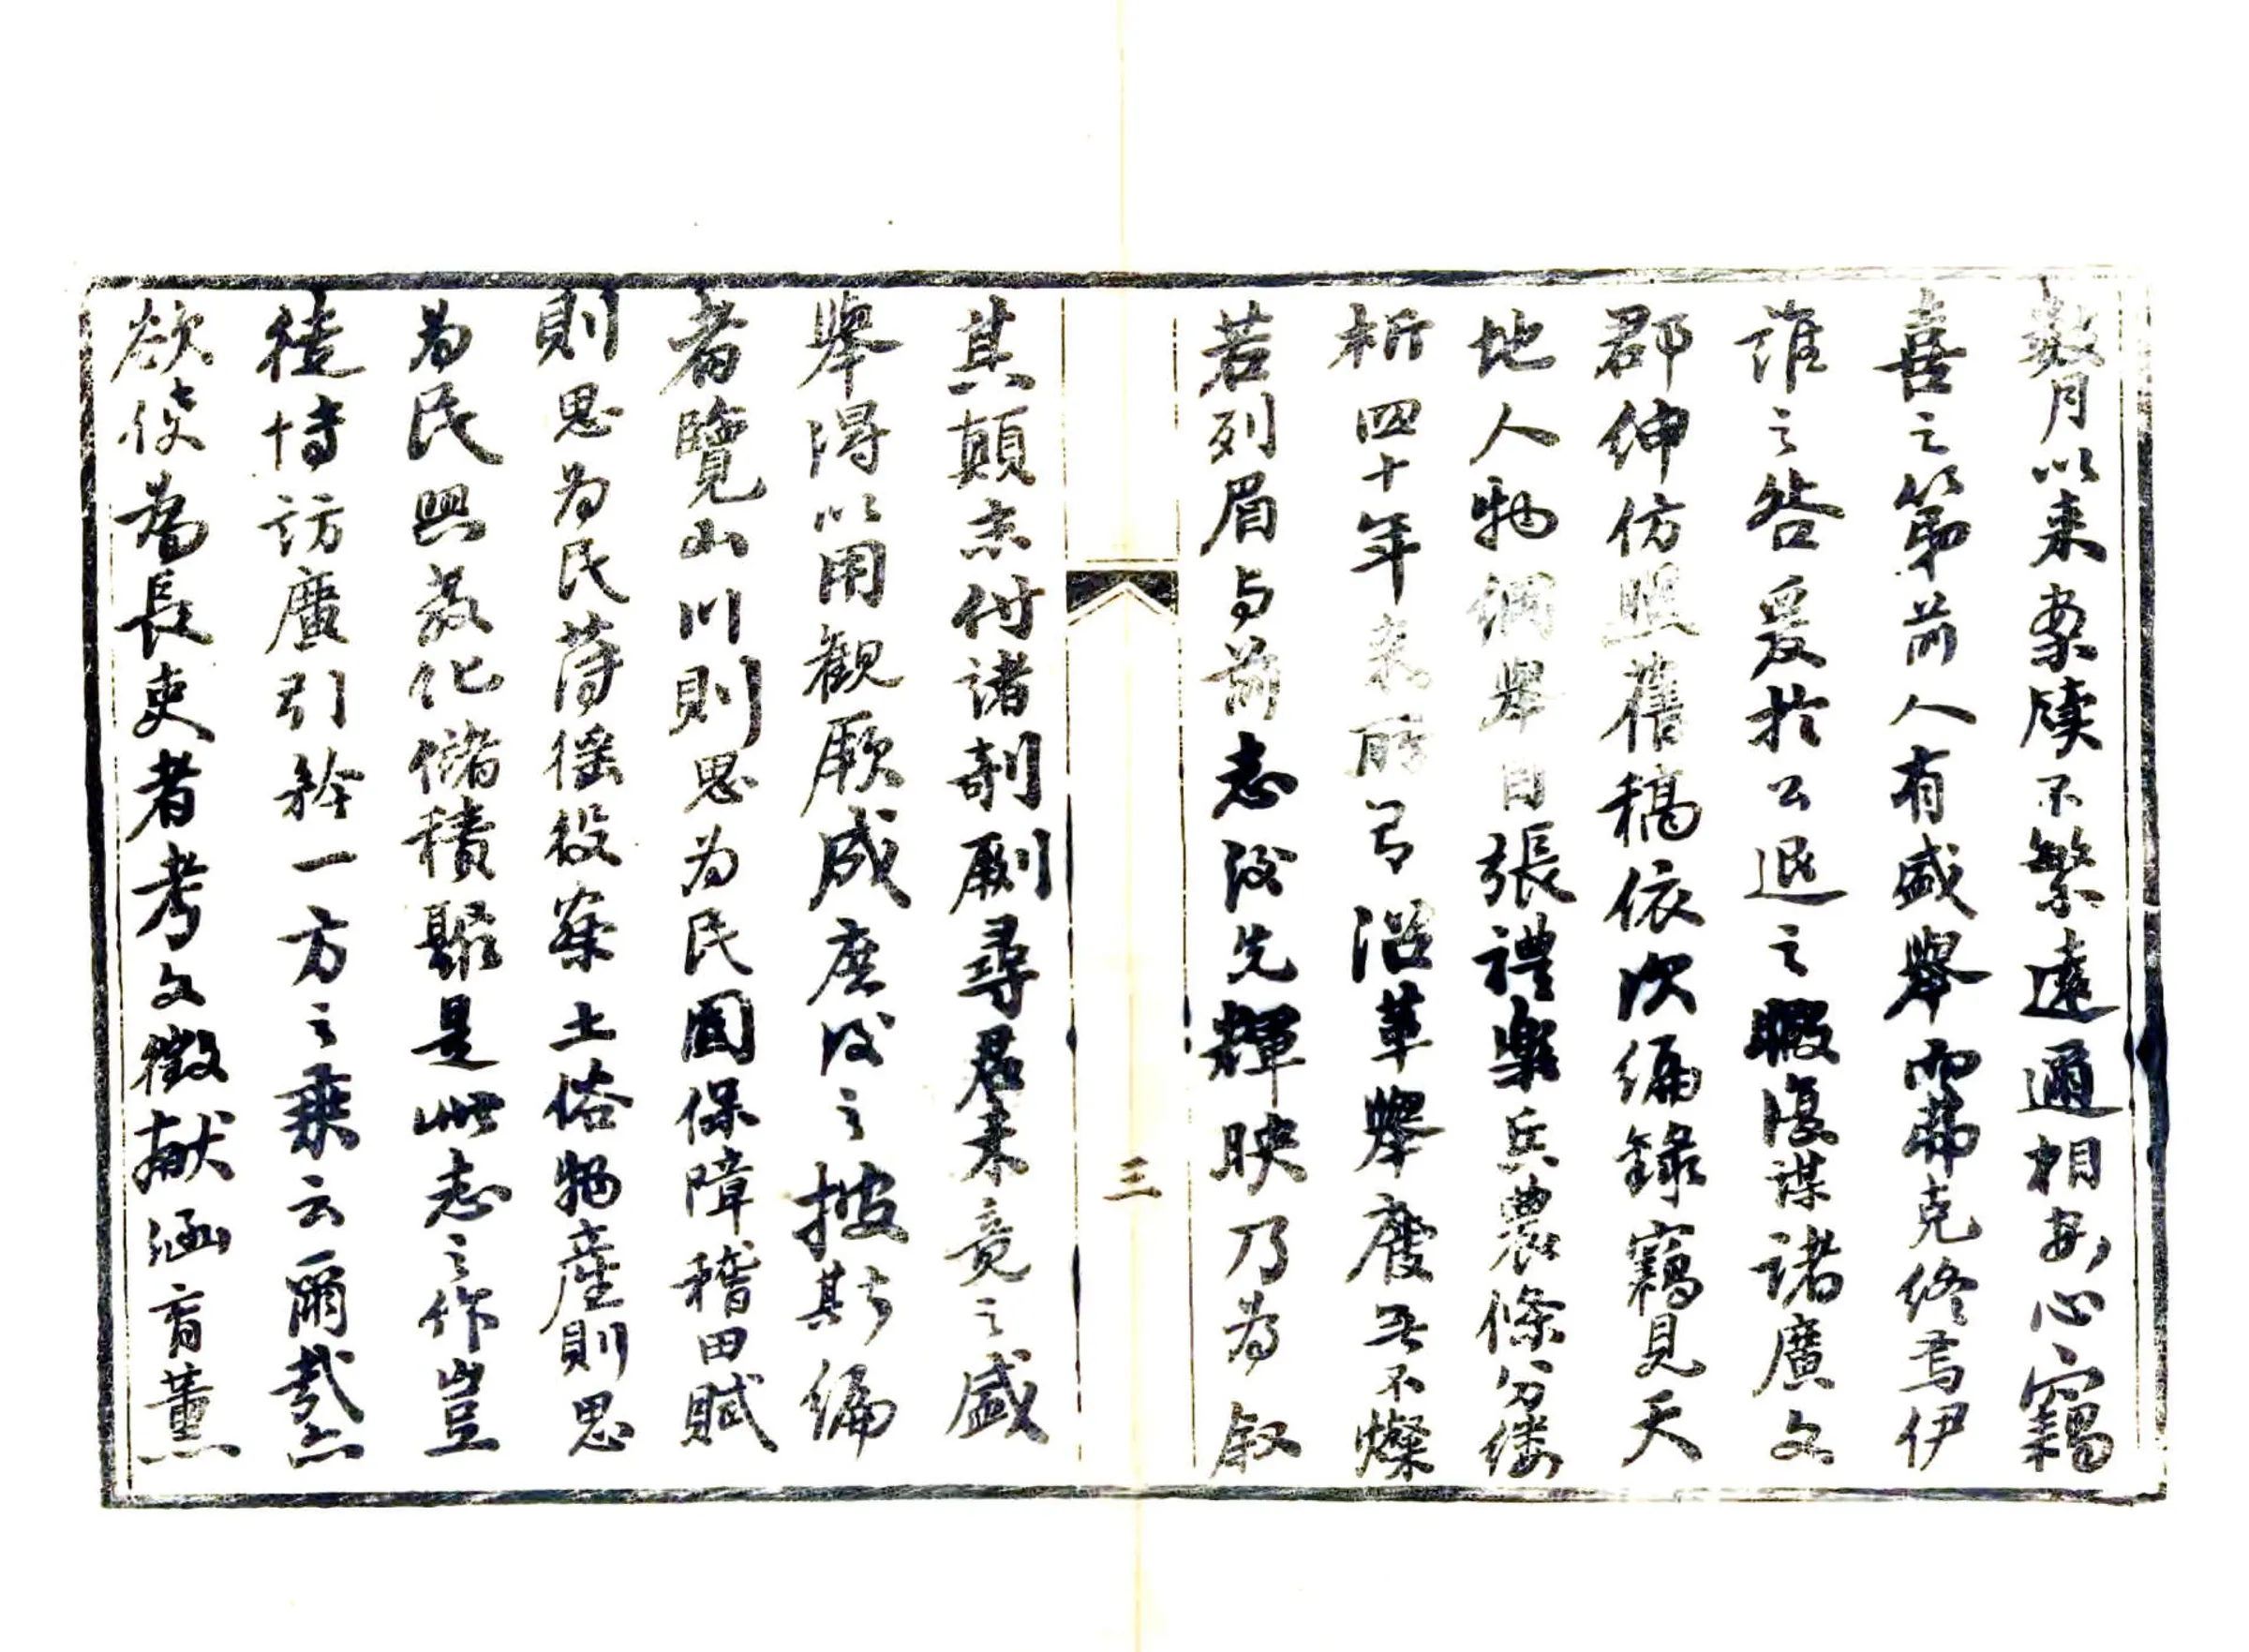 數月以来案牘不繁遠邇相安心竊
喜之第前人有盛舉而弗克終焉伊
誰之咎爰於公退之暇復謀諸廣文
郡紳仿照舊稿依次編錄竊見天
地人物綱舉目張禮樂兵農條分縷
析四十年来所有沿革舉廢無不燦
若列眉与前志後先輝映乃為叙
三
其顛末付諸剞劂尋君未竟之盛
舉得以用觀厥成庶後之披斯編
者覽山川則思為民固保障稽田賦
則思為民薄徭役案土俗物産則思
為民興教化儲積聚是此志之作豈
徒博訪廣引矜一方之乘云爾哉亦
欲使為長吏者考文徵献涵育薰